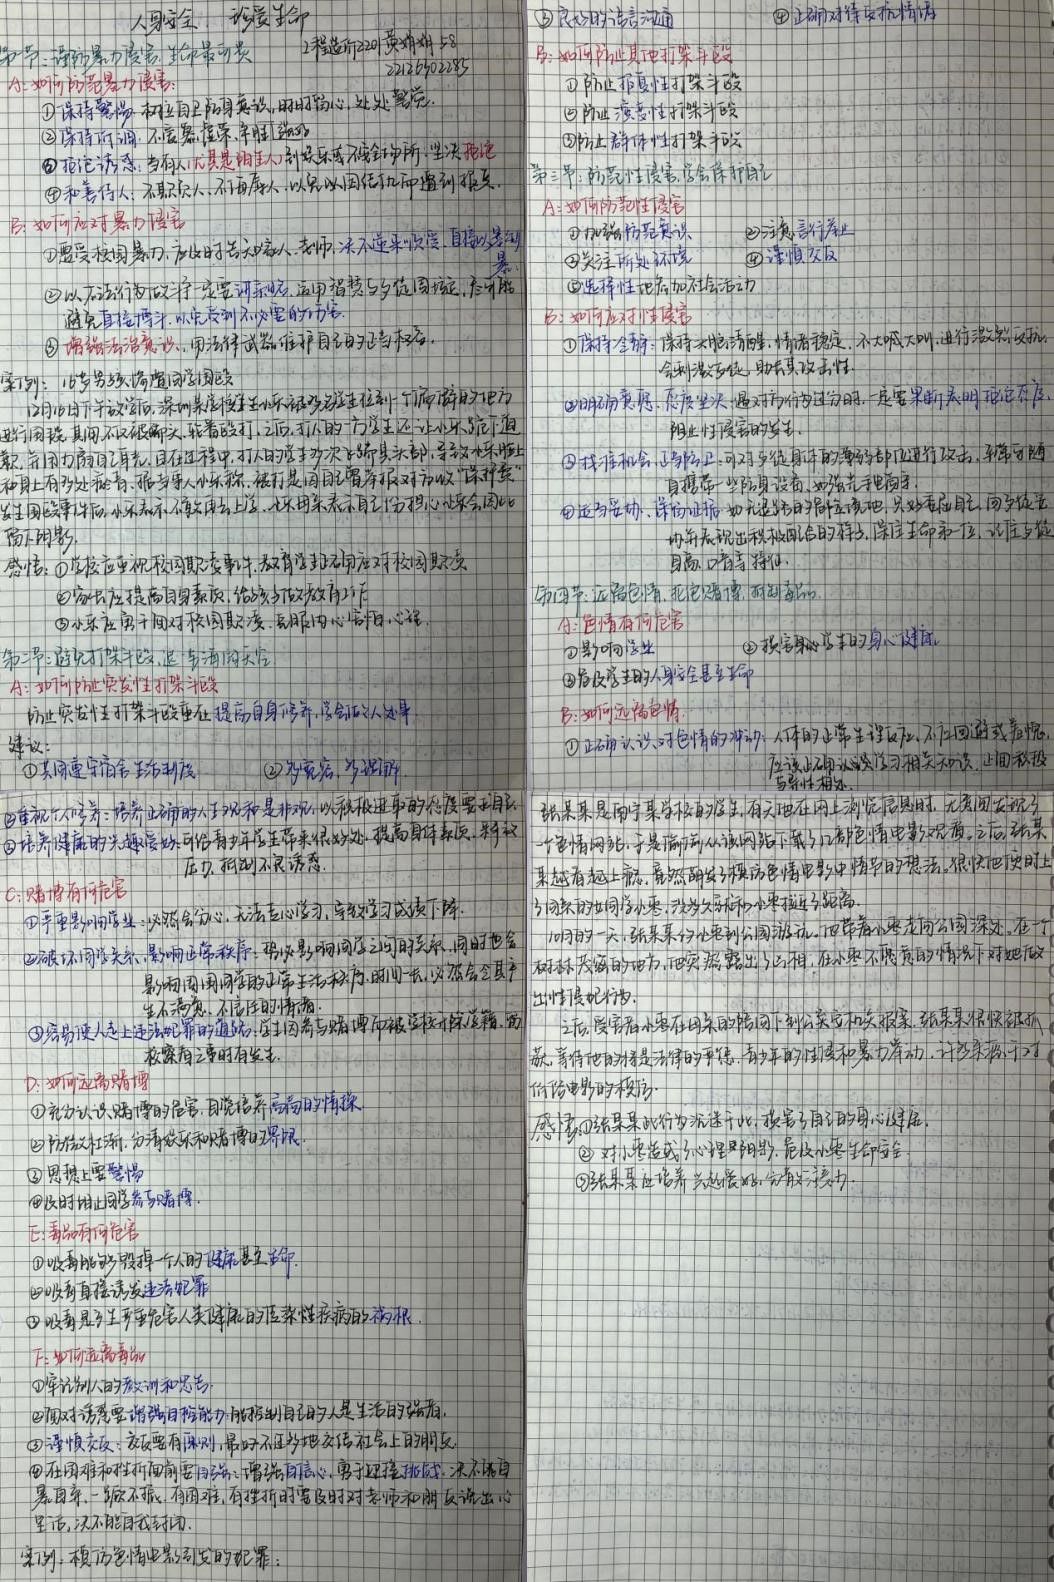 人身安全 珍爱生命
第一节：谨防暴力侵害，生命最可贵
A：如何防范暴力侵害：
①保持警惕：树立自卫防身意识，时时留心，处处警觉.
②保持低调：不露富、虚荣、争强
③拒绝诱惑：当有人(尤其是陌生人)到娱乐或不安全场所，坚决拒绝
④和善待人：不欺负人、不侮辱人，以免以因结仇而遭到报复.
B：如何应对暴力侵害
①遭受校园暴力，应及时告知家人、老师，决不逆来顺受，直接以暴制
暴.
②以合法行为做斗争一定要讲策略，运用智慧与歹徒周旋，尽可能
避免直接搏斗，以免受到不必要的伤害.
③增强法治意识，用法律武器维护自己的正当权益.
案例：16岁男孩惨遭同学围殴
12月16日下午放学后，深圳某高校学生小乐被多名学生拉到一个偏僻的地方
进行围殴，其间不仅被踢头、轮着殴打，之后，打人的一方学生还让小乐跪下道
歉，并用力扇自己耳光，且在过程中，打人的学生多次踩踢其头部，导致小乐脸上
和身上有多处挫伤，据当事人小乐称，被打是因自己曾举报对方收"保护费"
发生围殴事件后，小乐表示不敢再去上学，小乐母亲表示自己伤担心小乐会因此
留下阴影.
感悟：①学校应重视校园欺凌事件，教育学生正确应对校园欺凌
②家长应提高自身素质，给孩子做教育工作
③小乐应勇于面对校园欺凌，克服内心害怕心理.
第二节：避免打架斗殴，还青春清朗天空
A：如何防止突发性打架斗殴
防止突发性打架斗殴重在提高自身修养，学会做人处事
建议：
①共同遵守宿舍生活制度 ②多宽容，多理解
③良好的语言沟通 ④正确对待反抗情绪
B：如何防止其他打架斗殴
①防止报复性打架斗殴
②防止演变性打架斗殴
③防止群体性打架斗殴
第三节：防范性侵害，学会保护自己
A：如何防范性侵害
①加强防范意识 ②注意言行举止
③关注所处环境 ④谨慎交友
⑤选择性地参加社会活动
B：如何应对性侵害
①保持冷静：保持头脑清醒，情绪稳定，不大喊大叫，进行激烈反抗，
会刺激歹徒，助长其攻击性.
②明确意愿，态度坚决：遇对方行为过分时，一定要果断表明拒绝态度，
阻止性侵害的发生.
③找准机会，正当防卫：可对歹徒身体的薄弱部位进行攻击，平常可随
身携带一些防身设备，如强光手电筒等.
④适当妥协，保留证据：如无退路的即位境地，只好委屈自己，向歹徒妥
协并表现出积极配合的样子，保住生命第一位，记住歹徒
身高、口音等特征.
第四节：远离色情，拒绝赌博，抵制毒品
A：色情有何危害
①影响学业 ②损害学生的身心健康
③危及学生的人身安全甚至生命
B：如何远离色情.
①正确认识对色情的冲动：人体的正常生理反应，不应回避或羞愧，
应该正确认识学习相关知识，正面积极
与异性相处.
②重视个人修养：培养正确的人生观和是非观，以积极进取的态度要求自己.
③培养健康的兴趣爱好：可给青少年学生带来很多好处，提高身体素质，释放
压力，抵制不良诱惑.
C：赌博有何危害
①严重影响学业：必然会分心，无法专心学习，导致学习成绩下降.
②破坏同学关系，影响正常秩序：势必影响同学之间的关系，同时也会
影响周围同学的正常生活秩序，时间一长，必然会令其产
生不满意、不信任的情绪.
③容易使人走上违法犯罪的道路：学生因参与赌博而被学校开除学籍、留
校察看之事时有发生.
D：如何远离赌博
①充分认识赌博的危害，自觉培养高尚的情操.
②防微杜渐，分清娱乐和赌博的界限.
③思想上要警惕
④及时阻止同学参与赌博.
E：毒品有何危害
①吸毒能够毁掉一个人的健康甚至生命.
②吸毒直接诱发违法犯罪
③吸毒是产生严重危害人类健康的传染性疾病的祸根.
F：如何远离毒品
①牢记别人的教训和忠告.
②面对诱惑要增强自控能力：能控制自己的人是生活的强者.
③谨慎交友：交友要有原则，最好不过多地交结社会上的朋友.
④在困难和挫折面前要自强：增强自信心，勇于迎接挑战，决不能自
暴自弃，一蹶不振，有困难、有挫折的要及时对老师和朋友说出心
里话，决不能自我封闭.
案例：模仿色情电影引发的犯罪：
张某某是南宁某学校的学生，有天他在网上浏览信息时，无意间发现了
一个色情网站，于是偷偷从该网站下载了几部色情电影观看。之后，张某
某越看越上瘾，竟然萌发了模仿色情电影中情节的想法。很快他便盯上
了同桌的女同学小枣，没多久就和小枣拉近了距离.
10月的一天，张某某约小枣到公园游玩。他带着小枣走向公园深处，在一个
树林茂密的地方，他突然露出了凶相，在小枣不愿意的情况下对她做
出性侵犯行为.
之后，受害者小枣在同桌的陪同下到公安机关报案，张某某很快被抓
获，等待他的将是法律的严惩，青少年的性侵和暴力举动，许多来源于对
低俗电影的模仿.
感悟：①张某某此行为沉迷于此，损害了自己的身心健康.
②对小枣造成了心理阴影，危及小枣生命安全.
③张某某应培养兴趣爱好，分散注意力.